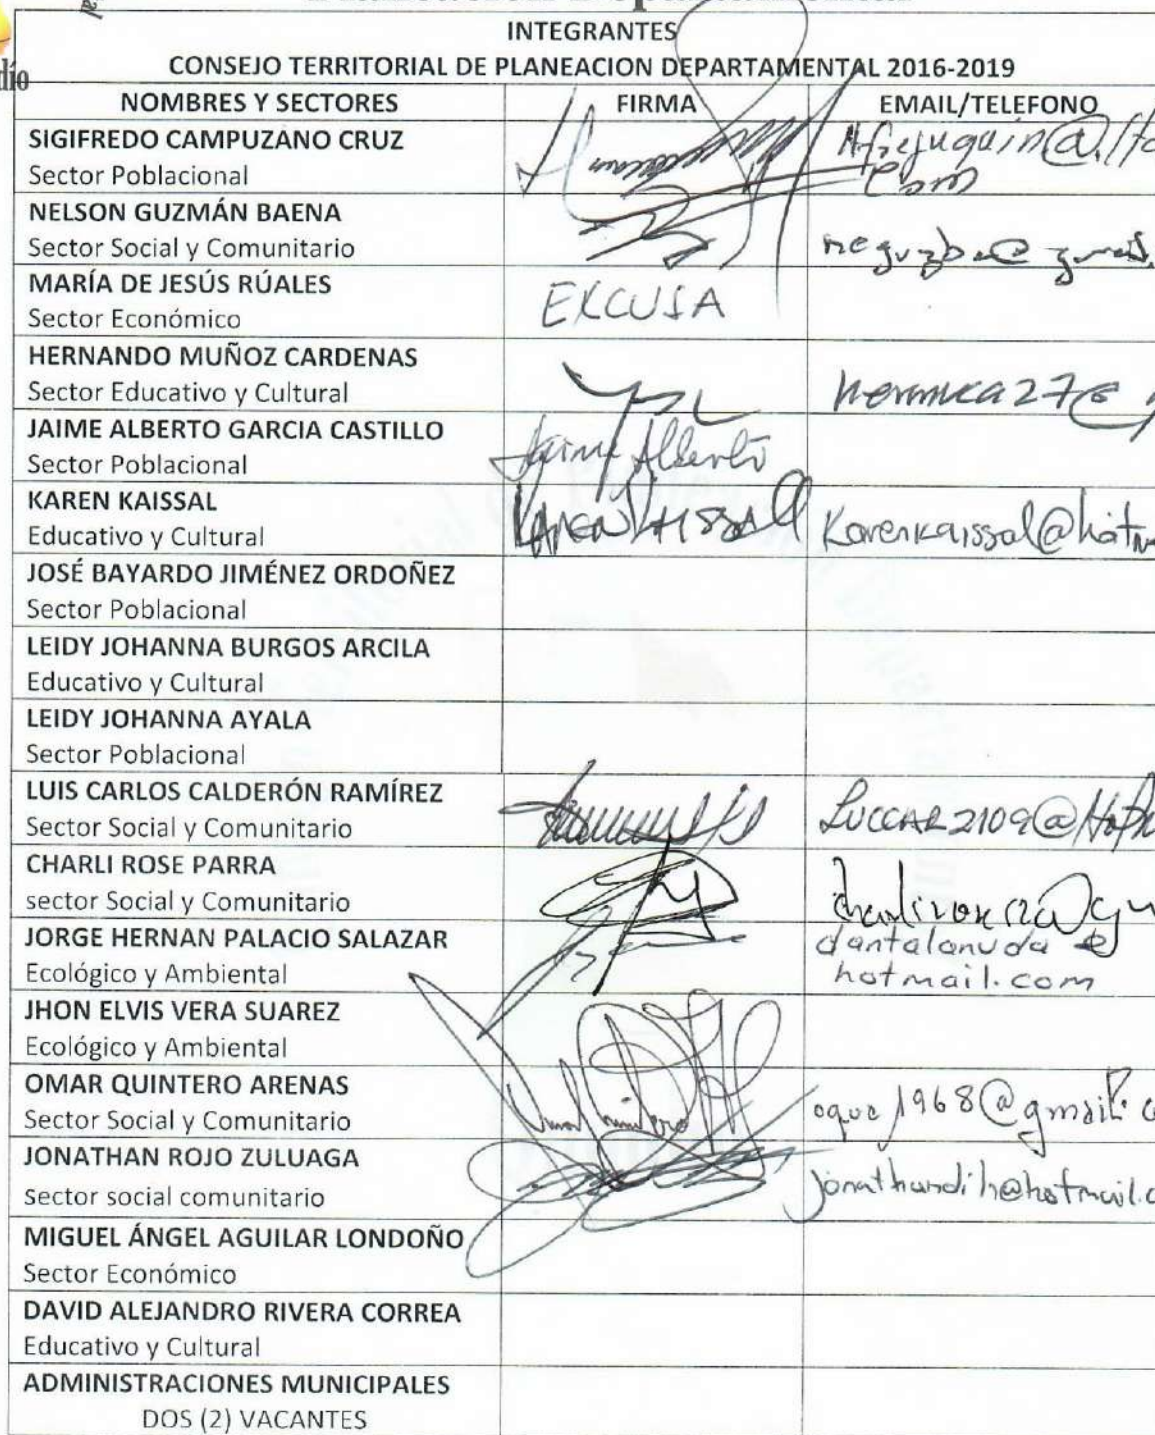 INTEGRANTES
CONSEJO TERRITORIAL DE PLANEACION DEPARTAMENTAL 2016-2019
NOMBRES Y SECTORES FIRMA EMAIL/TELEFONO
SIGIFREDO CAMPUZANO CRUZ
Sector Poblacional
NELSON GUZMÁN BAENA
Sector Social y Comunitario
MARÍA DE JESÚS RÚALES
Sector Económico
EXCUSA
HERNANDO MUÑOZ CARDENAS
Sector Educativo y Cultural
JAIME ALBERTO GARCIA CASTILLO
Sector Poblacional
Jaime Alberto
KAREN KAISSAL
Educativo y Cultural
Karenkaissal@hotm
JOSÉ BAYARDO JIMÉNEZ ORDOÑEZ
Sector Poblacional
LEIDY JOHANNA BURGOS ARCILA
Educativo y Cultural
LEIDY JOHANNA AYALA
Sector Poblacional
LUIS CARLOS CALDERÓN RAMÍREZ
Sector Social y Comunitario
CHARLI ROSE PARRA
sector Social y Comunitario
JORGE HERNAN PALACIO SALAZAR
Ecológico y Ambiental
dantalanuda @
hotmail.com
JHON ELVIS VERA SUAREZ
Ecológico y Ambiental
OMAR QUINTERO ARENAS
Sector Social y Comunitario
JONATHAN ROJO ZULUAGA
Sector social comunitario
MIGUEL ÁNGEL AGUILAR LONDOÑO
Sector Económico
DAVID ALEJANDRO RIVERA CORREA
Educativo y Cultural
ADMINISTRACIONES MUNICIPALES
DOS (2) VACANTES